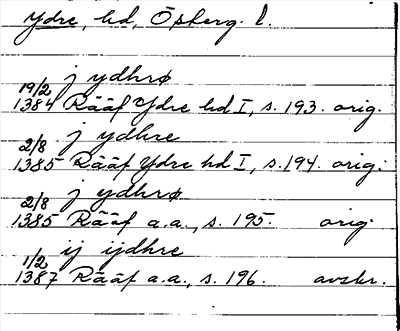 Ydre, hd, Ösberg. l.
j ydhrø
19/2
1384 Rääf Ydre hd I, s. 193. orig.
j ydhre
2/8
1385 Rääf Ydre hd I, s. 194. orig.
j ydhrø
2/8
1385 Rääf a.a., s. 195. orig.
ij ijdhre
1/2
1387 Rääf a.a., s. 196. avskr.